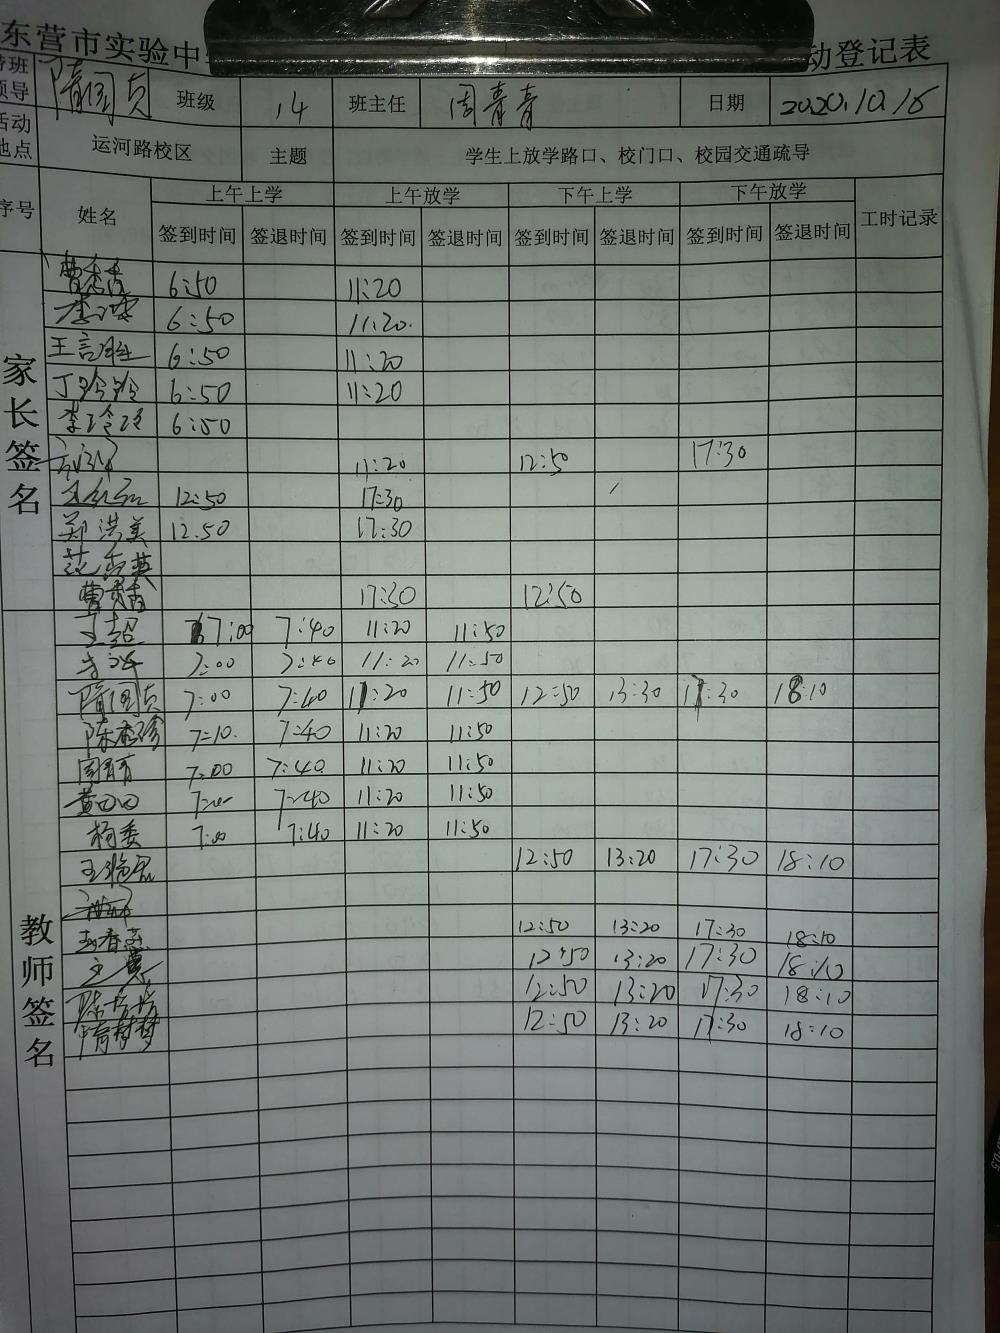 东营市实验中 动登记表
带班领导 隋国贞 班级 14 班主任 周青青 日期 2020.10.16
活动地点 运河路校区 主题 学生上放学路口、校门口、校园交通疏导
序号 姓名 上午上学 上午放学 下午上学 下午放学 工时记录
签到时间 签退时间 签到时间 签退时间 签到时间 签退时间 签到时间 签退时间
家长签名
曹秀香 6:50 11:20
6:50 11:20.
王言胜 6:50 11:20
丁玲玲 6:50 11:20
李玲玲 6:50
11:20 12:50 17:30
12:50 17:30
郑洪美 12.50 17:30
范秀英
曹秀香 17:30 12:50
教师签名
王超 7:00 7:40 11:20 11:50
7:00 7:40 11:20 11:50
隋国贞 7:00 7:40 11:20 11:50 12:50 13:30 17:30 18:10
陈春珍 7:10. 7:40 11:20 11:50
周青青 7:00 7:40 11:20 11:50
黄田田 7:00 7:40 11:20 11:50
杨委 7:00 7:40 11:20 11:50
12:50 13:20 17:30 18:10
12:50 13:20 17:30 18:10
12:50 13:20 17:30 18:10
陈芳芳 12:50 13:20 17:30 18:10
隋梦梦 12:50 13:20 17:30 18:10